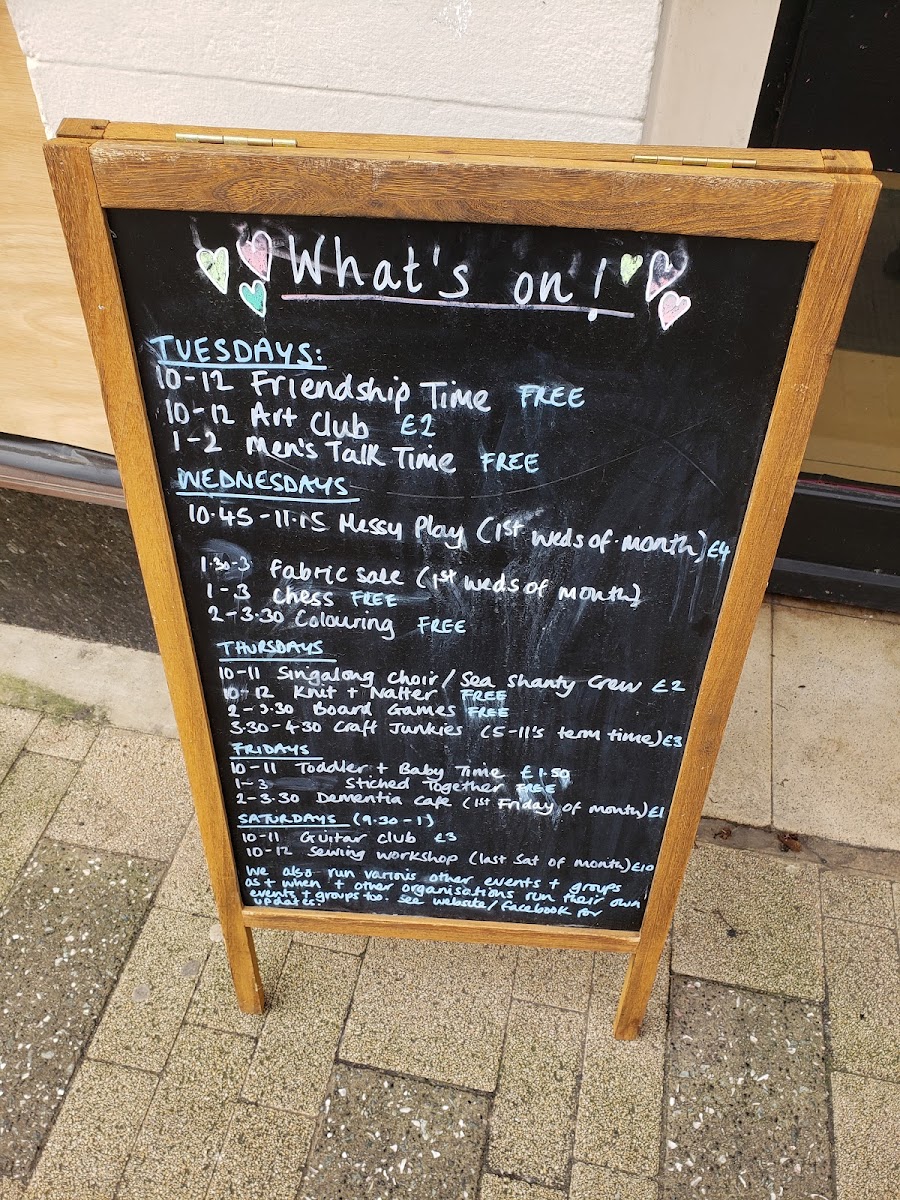 What's on!
TUESDAYS:
10-12 Friendship Time FREE
10-12 Art Club £2
1-2 Men's Talk Time FREE
WEDNESDAYS
10.45-11.15 Messy Play (1st weds of month) £4
1.30-3 Fabric Sale (1st weds of month)
1-3 Chess FREE
2-3.30 Colouring FREE
THURSDAYS
10-11 Singalong Choir/Sea Shanty Crew £2
10-12 Knit + Natter FREE
2-3.30 Board Games FREE
3.30-4.30 Craft Junkies (5-11's term time) £3
FRIDAYS
10-11 Toddler + Baby Time £1.50
1-3 Stiched Together FREE
2-3.30 Dementia Cafe (1st Friday of month) £1
SATURDAYS (9.30-1)
10-11 Guitar club £3
10-12 Sewing workshop (last Sat of month) £10
We also run various other events + groups
as + when + other organisations run their own
events + groups too. See website/facebook for
updates.